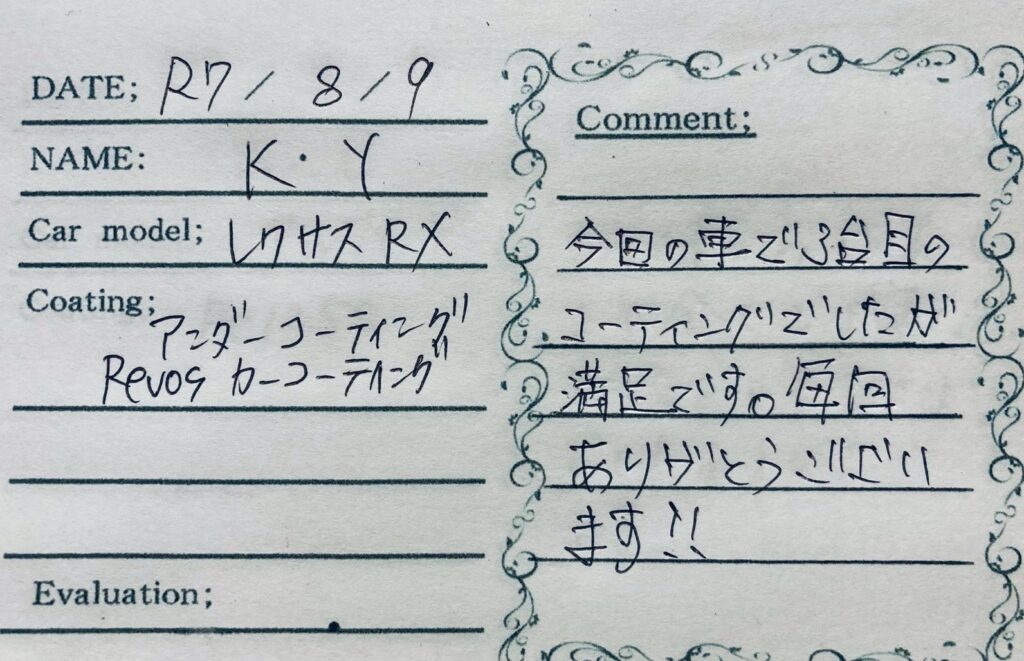 DATE; R7 / 8 / 9
NAME: K・Y
Car model; レクサス RX
Coating;
アンダーコーティング
Revos カーコーティング
Evaluation;
Comment;
今回の車で3台目の
コーティングでしたが
満足です。毎回
ありがとうござい
ます!!